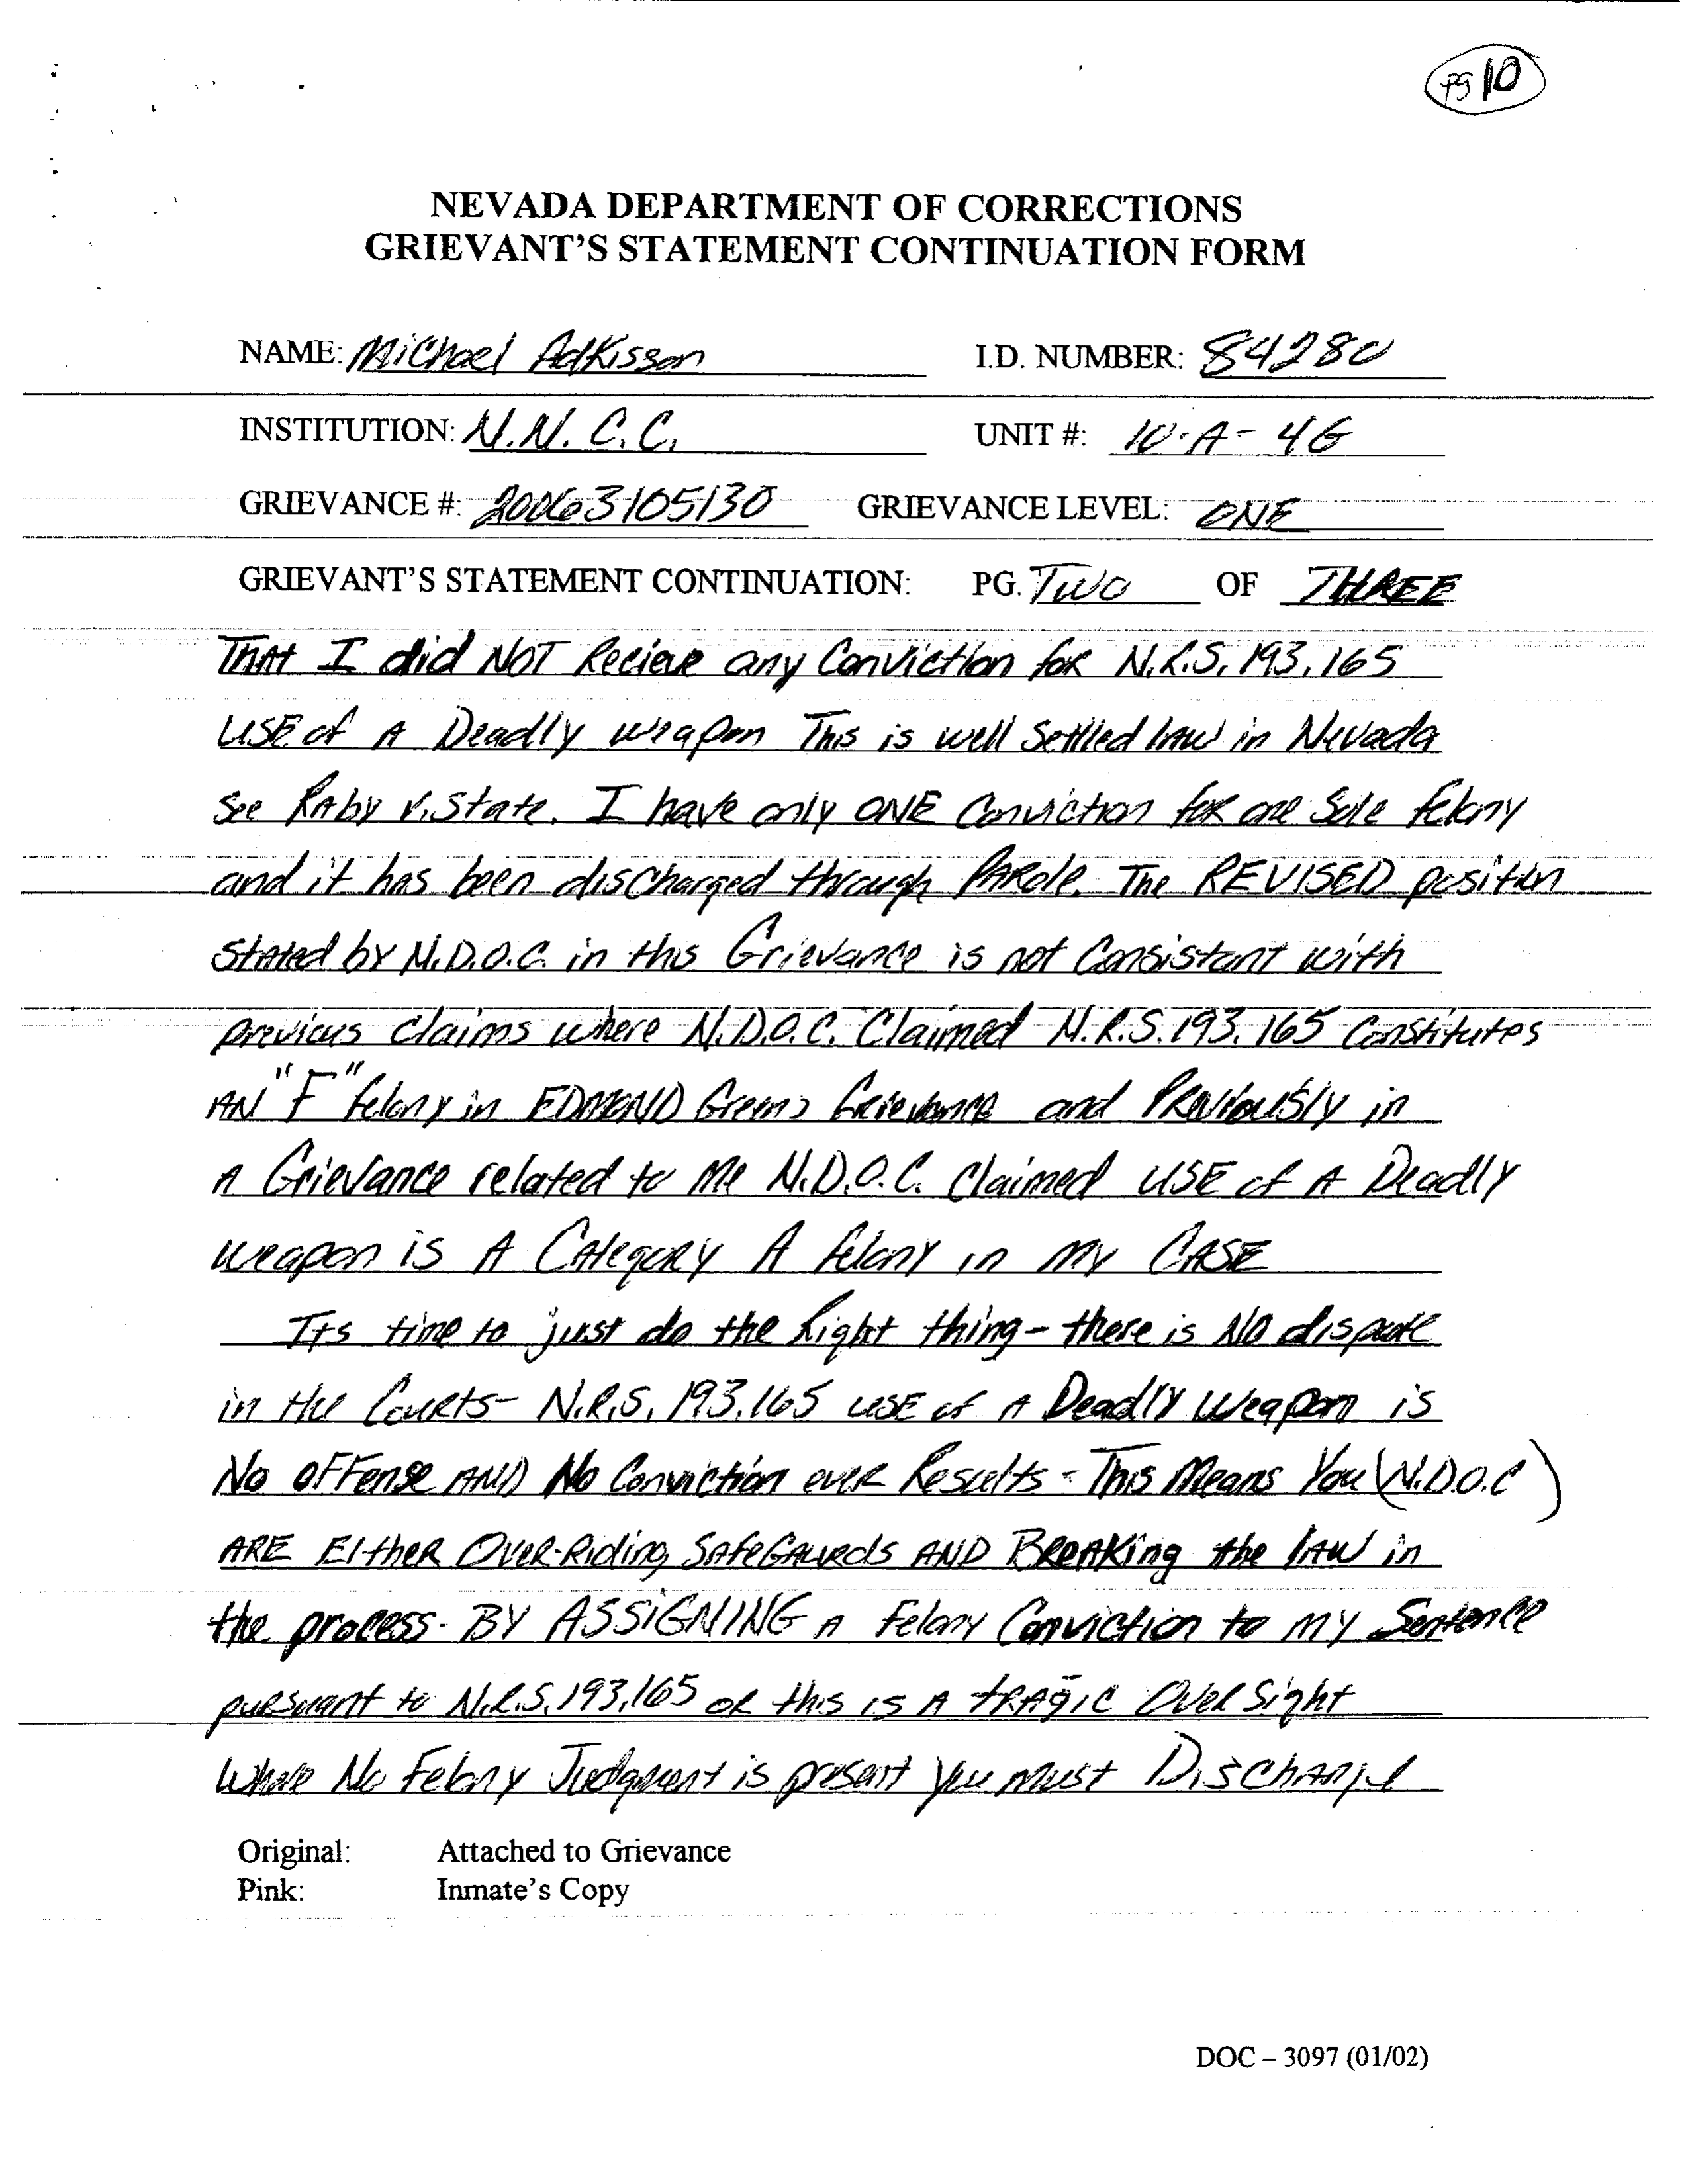 pg 10
NEVADA DEPARTMENT OF CORRECTIONS
GRIEVANT'S STATEMENT CONTINUATION FORM
NAME: Michael Adkisson I.D. NUMBER: 84280
INSTITUTION: N.N.C.C. UNIT #: 10-A-4G
GRIEVANCE #: 20063105130 GRIEVANCE LEVEL: ONE
GRIEVANT'S STATEMENT CONTINUATION: PG. Two OF THREE
That I did NOT Recieve any Conviction for N.R.S. 193.165
USE of A Deadly weapon This is well Settled law in Nevada
See Raby v. State. I have only ONE Conviction for one Sole felony
and it has been discharged through Parole. The REVISED position
Stated by N.D.O.C. in this Grievance is not Consistant with
previous Claims where N.D.O.C. Claimed N.R.S. 193.165 Constitutes
AN "F" felony in EDMOND Greens Grievance and Previously in
A Grievance related to Me N.D.O.C. Claimed USE of A Deadly
weapon is A Category A felony in my CASE
Its time to just do the Right thing - there is NO dispute
in the Courts - N.R.S. 193.165 USE of A Deadly Weapon is
No OFFense AND No Conviction ever Results - This Means You (N.D.O.C)
ARE Either Over-Riding SafeGaurds AND Breaking the law in
the process - BY ASSIGNING A Felony Conviction to my Sentence
pursuant to N.R.S. 193.165 or this is A tragic Over Sight
Where No Felony Judgment is present you must Discharge
Original: Attached to Grievance
Pink: Inmate's Copy
DOC – 3097 (01/02)